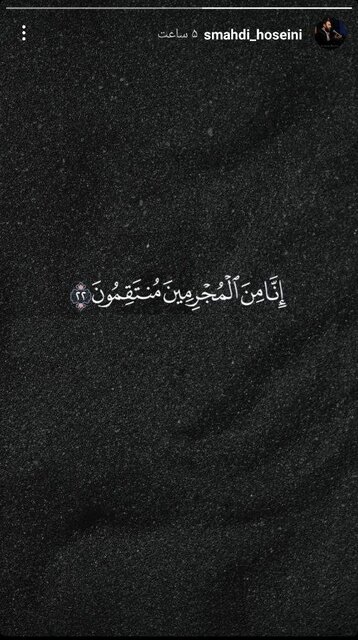 smahdi_hoseini ۵ ساعت
إِنَّا مِنَ ٱلْمُجْرِمِينَ مُنتَقِمُونَ ٢٢